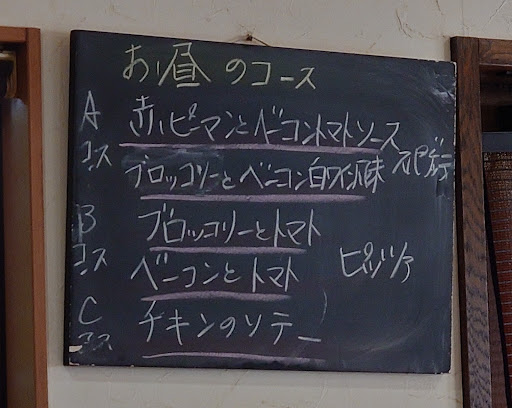 お昼のコース
Aコース 赤いピーマンとベーコントマトソース
ブロッコリーとベーコン白ワイン味 スパゲティ
Bコース ブロッコリーとトマト
ベーコンとトマト ピッツァ
Cコース チキンのソテー